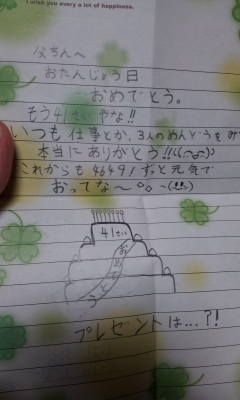 I wish you every a lot of happiness.
父ちんへ
おたんじょう日
おめでとう。
もう41さいやな!!
いつも仕事とか、3人のめんどうもみて
本当にありがとう!!!
これからも4649!ずっと元気で
おってな〜
41さい
おめでとう
プレゼントは...?!